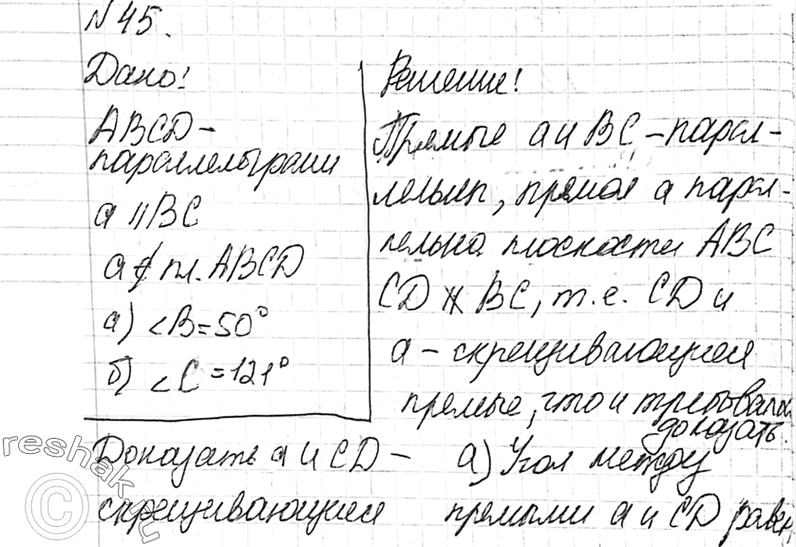 №45.
Дано:
ABCD-
параллелограмм
a || BC
a ⊄ пл. ABCD
а) <B=50°
б) <C=121°
Доказать a и CD –
скрещивающиеся
Решение:
Прямые a и BC – парал-
лельны, прямая a парал-
лельна плоскости ABC
CD ∦ BC, т.е. CD и
a – скрещивающиеся
прямые, что и требовалось
доказать.
а) Угол между
прямыми a и CD равен
reshak.ru
©